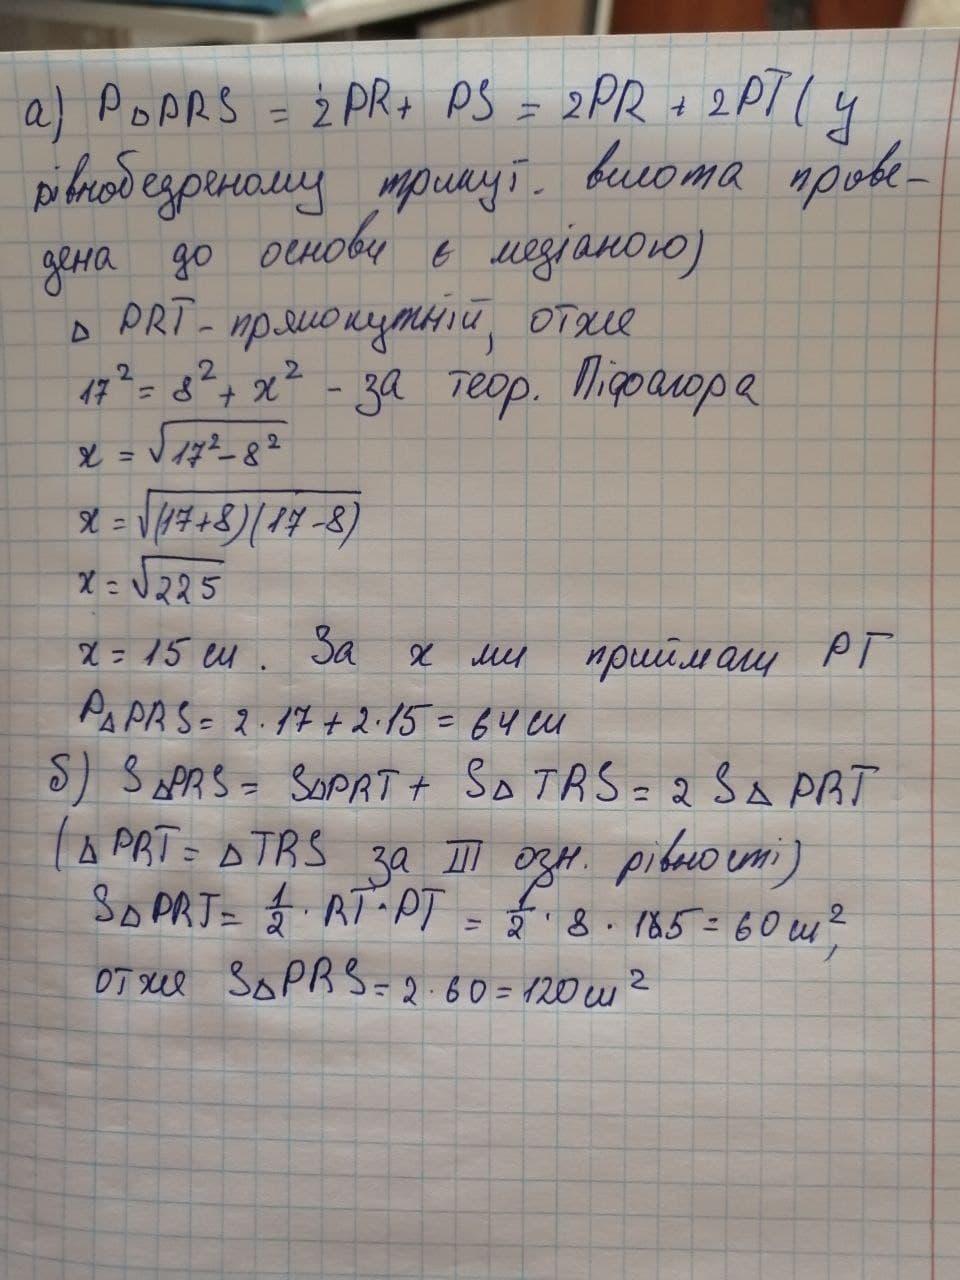 а) P△PRS = 2PR + PS = 2PR + 2PT ( у
рівнобедреному трикут. висота прове-
дена до основи є медіаною)
△ PRT - прямокутній, отже
17² = 8² + x² - за теор. Піфагора
x = √17² - 8²
x = √(17+8)(17-8)
x = √225
x = 15 см. За x ми приймали PT
P△PRS = 2·17 + 2·15 = 64 см
б) S△PRS = S△PRT + S△TRS = 2 S△PRT
(△PRT = △TRS за III озн. рівності)
S△PRT = 1/2 · RT · PT = 1/2 · 8 · 15 = 60 см²,
отже S△PRS = 2·60 = 120 см²